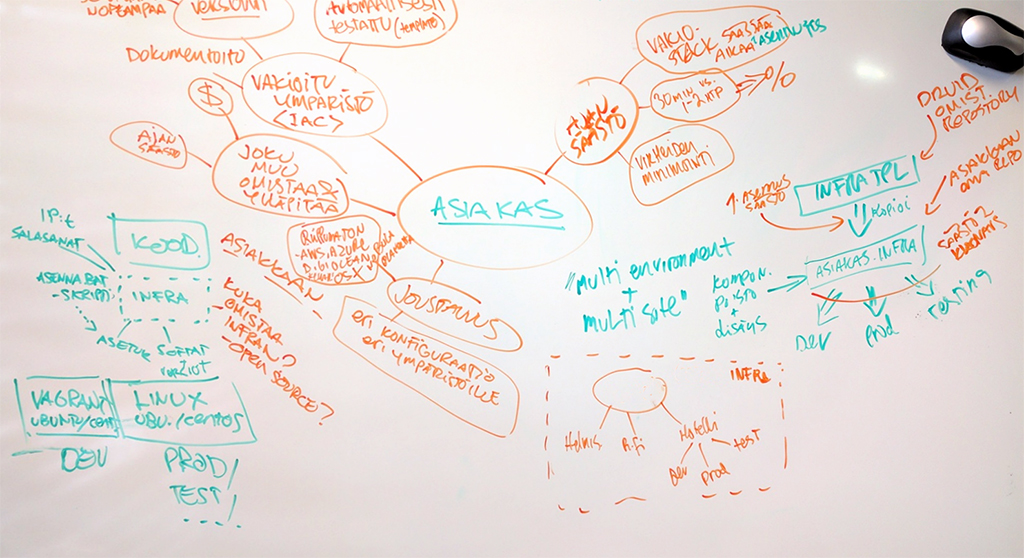 NOPEAMPAA
VERSIOINTI
AUTOMAATTISESTI
TESTATTU (template)
DOKUMENTOITU
VAKIOITU
YMPÄRISTÖ
<IAC>
$
AJAN
SÄÄSTÖ
JOKU
MUU
OMISTAA &
YLLÄPITÄÄ
ASIAKAS
SÄÄSTÖ
VAKIO-
STACK SÄÄSTÄÄ
AIKAA
30 MIN vs.
1-2 HTP
%
VIRHEIDEN
MINIMOINTI
RIIPPUMATON
-AWS, AZURE
JOUSTAVUUS
ERI KONFIGURAATIO
ERI YMPÄRISTÖILLE
ASIAKKAAN
KUKA
OMISTAA
INFRAN?
-OPEN SOURCE?
IP:t
SALASANAT
KOODI
ASENNA.BAT
-SKRIPTI
INFRA
SOFTAT
VAGRANT
UBUNTU/cent
LINUX
UBU./centos
DEV
PROD/
TEST/
"multi environment
+
multi site"
KOMPON.
POISTO
+
DRUID
OMIST.
REPOSITORY
ASIAKKAAN
OMA REPO
1. ASENNUS
SÄÄSTÖ
INFRA TPL
KOPIOI
ASIAKAS.INFRA
SÄÄSTÖ 2
DEV
prod
testing
INFRA
Hotelli
test
Dev
prod